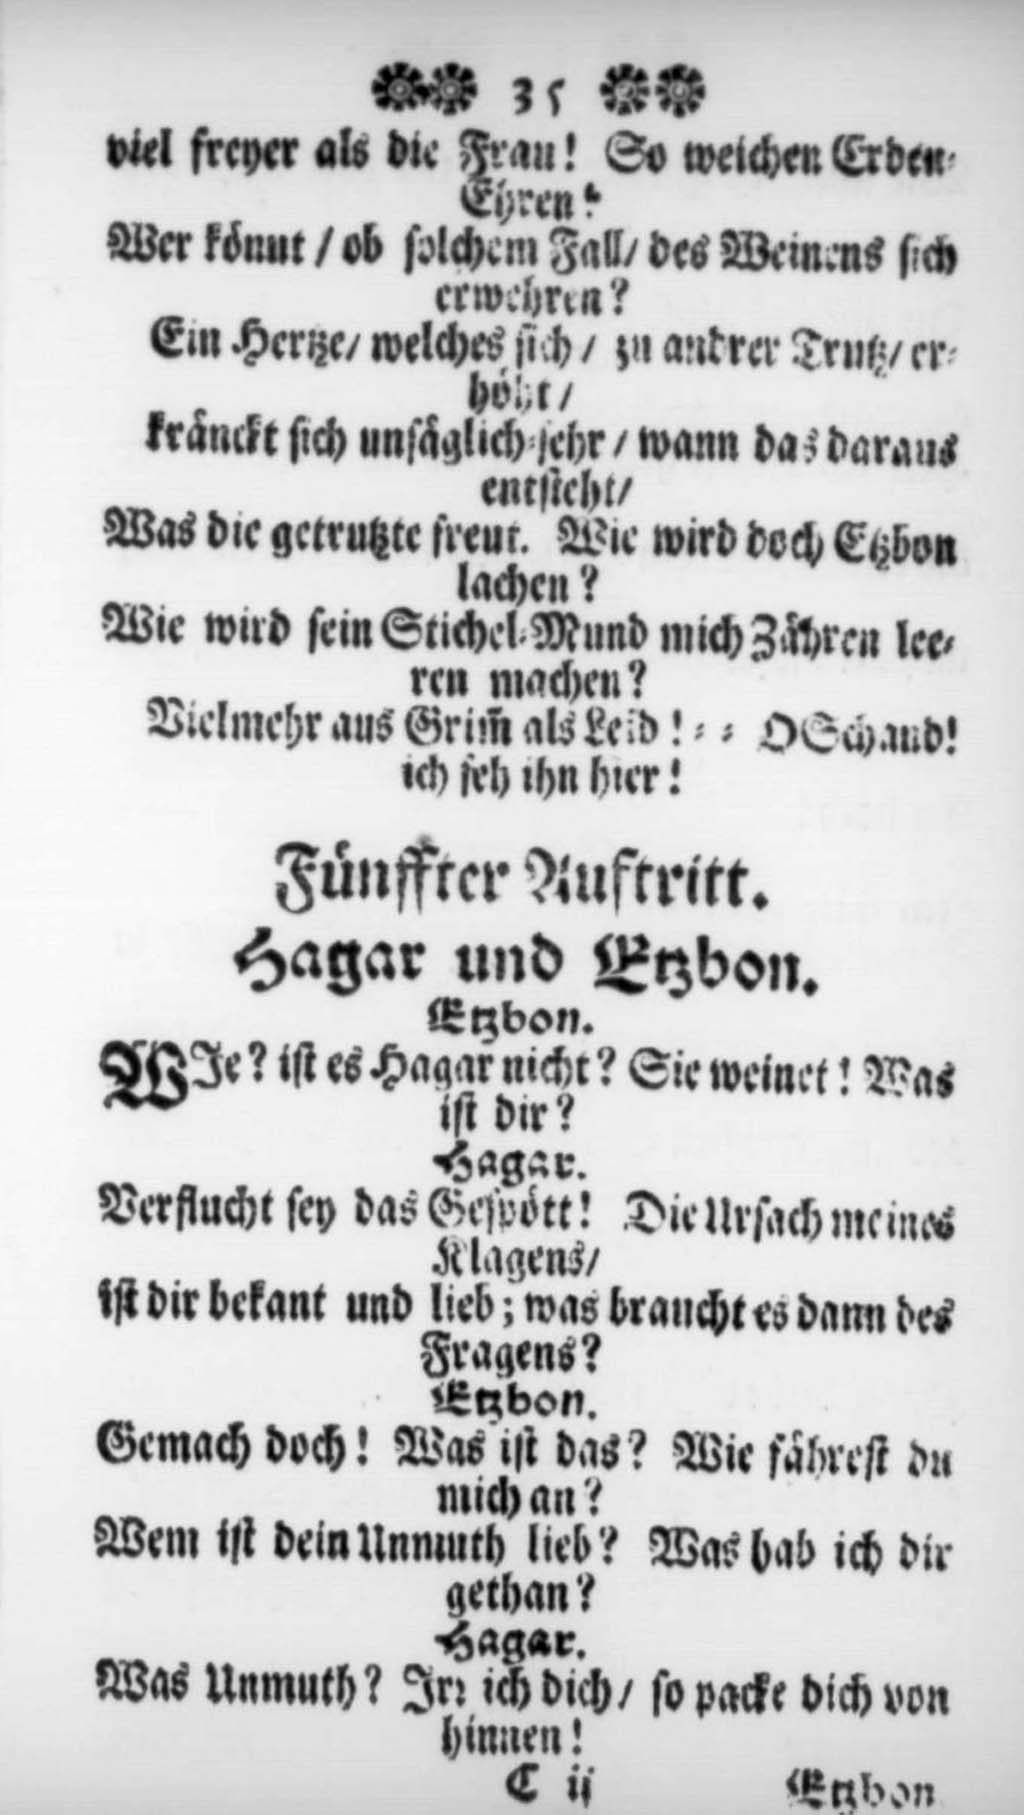 35
viel freyer als die Frau! So weichen Erden-
Ehren!
Wer könnt / ob solchem Fall / des Weinens sich
erwehren?
Ein Hertze / welches sich / zu andrer Trutz / er-
höht /
kränckt sich unsäglich-sehr / wann das daraus
entsteht /
Was die getrutzte freut. Wie wird doch Etzbon
lachen?
Wie wird sein Stichel-Mund mich Zähren lee-
ren machen?
Vielmehr aus Grim̃ als Leid! - - O Schand!
ich seh ihn hier!
Fünffter Auftritt.
Hagar und Etzbon.
Etzbon.
WJe? ist es Hagar nicht? Sie weinet! Was
ist dir?
Hagar.
Verflucht sey das Gespött! Die Ursach meines
Klagens /
ist dir bekant und lieb; was braucht es dann des
Fragens?
Etzbon.
Gemach doch! Was ist das? Wie fährest du
mich an?
Wem ist dein Unmuth lieb? Was hab ich dir
gethan?
Hagar.
Was Unmuth? Irr ich dich / so packe dich von
hinnen!
C ij Etzbon